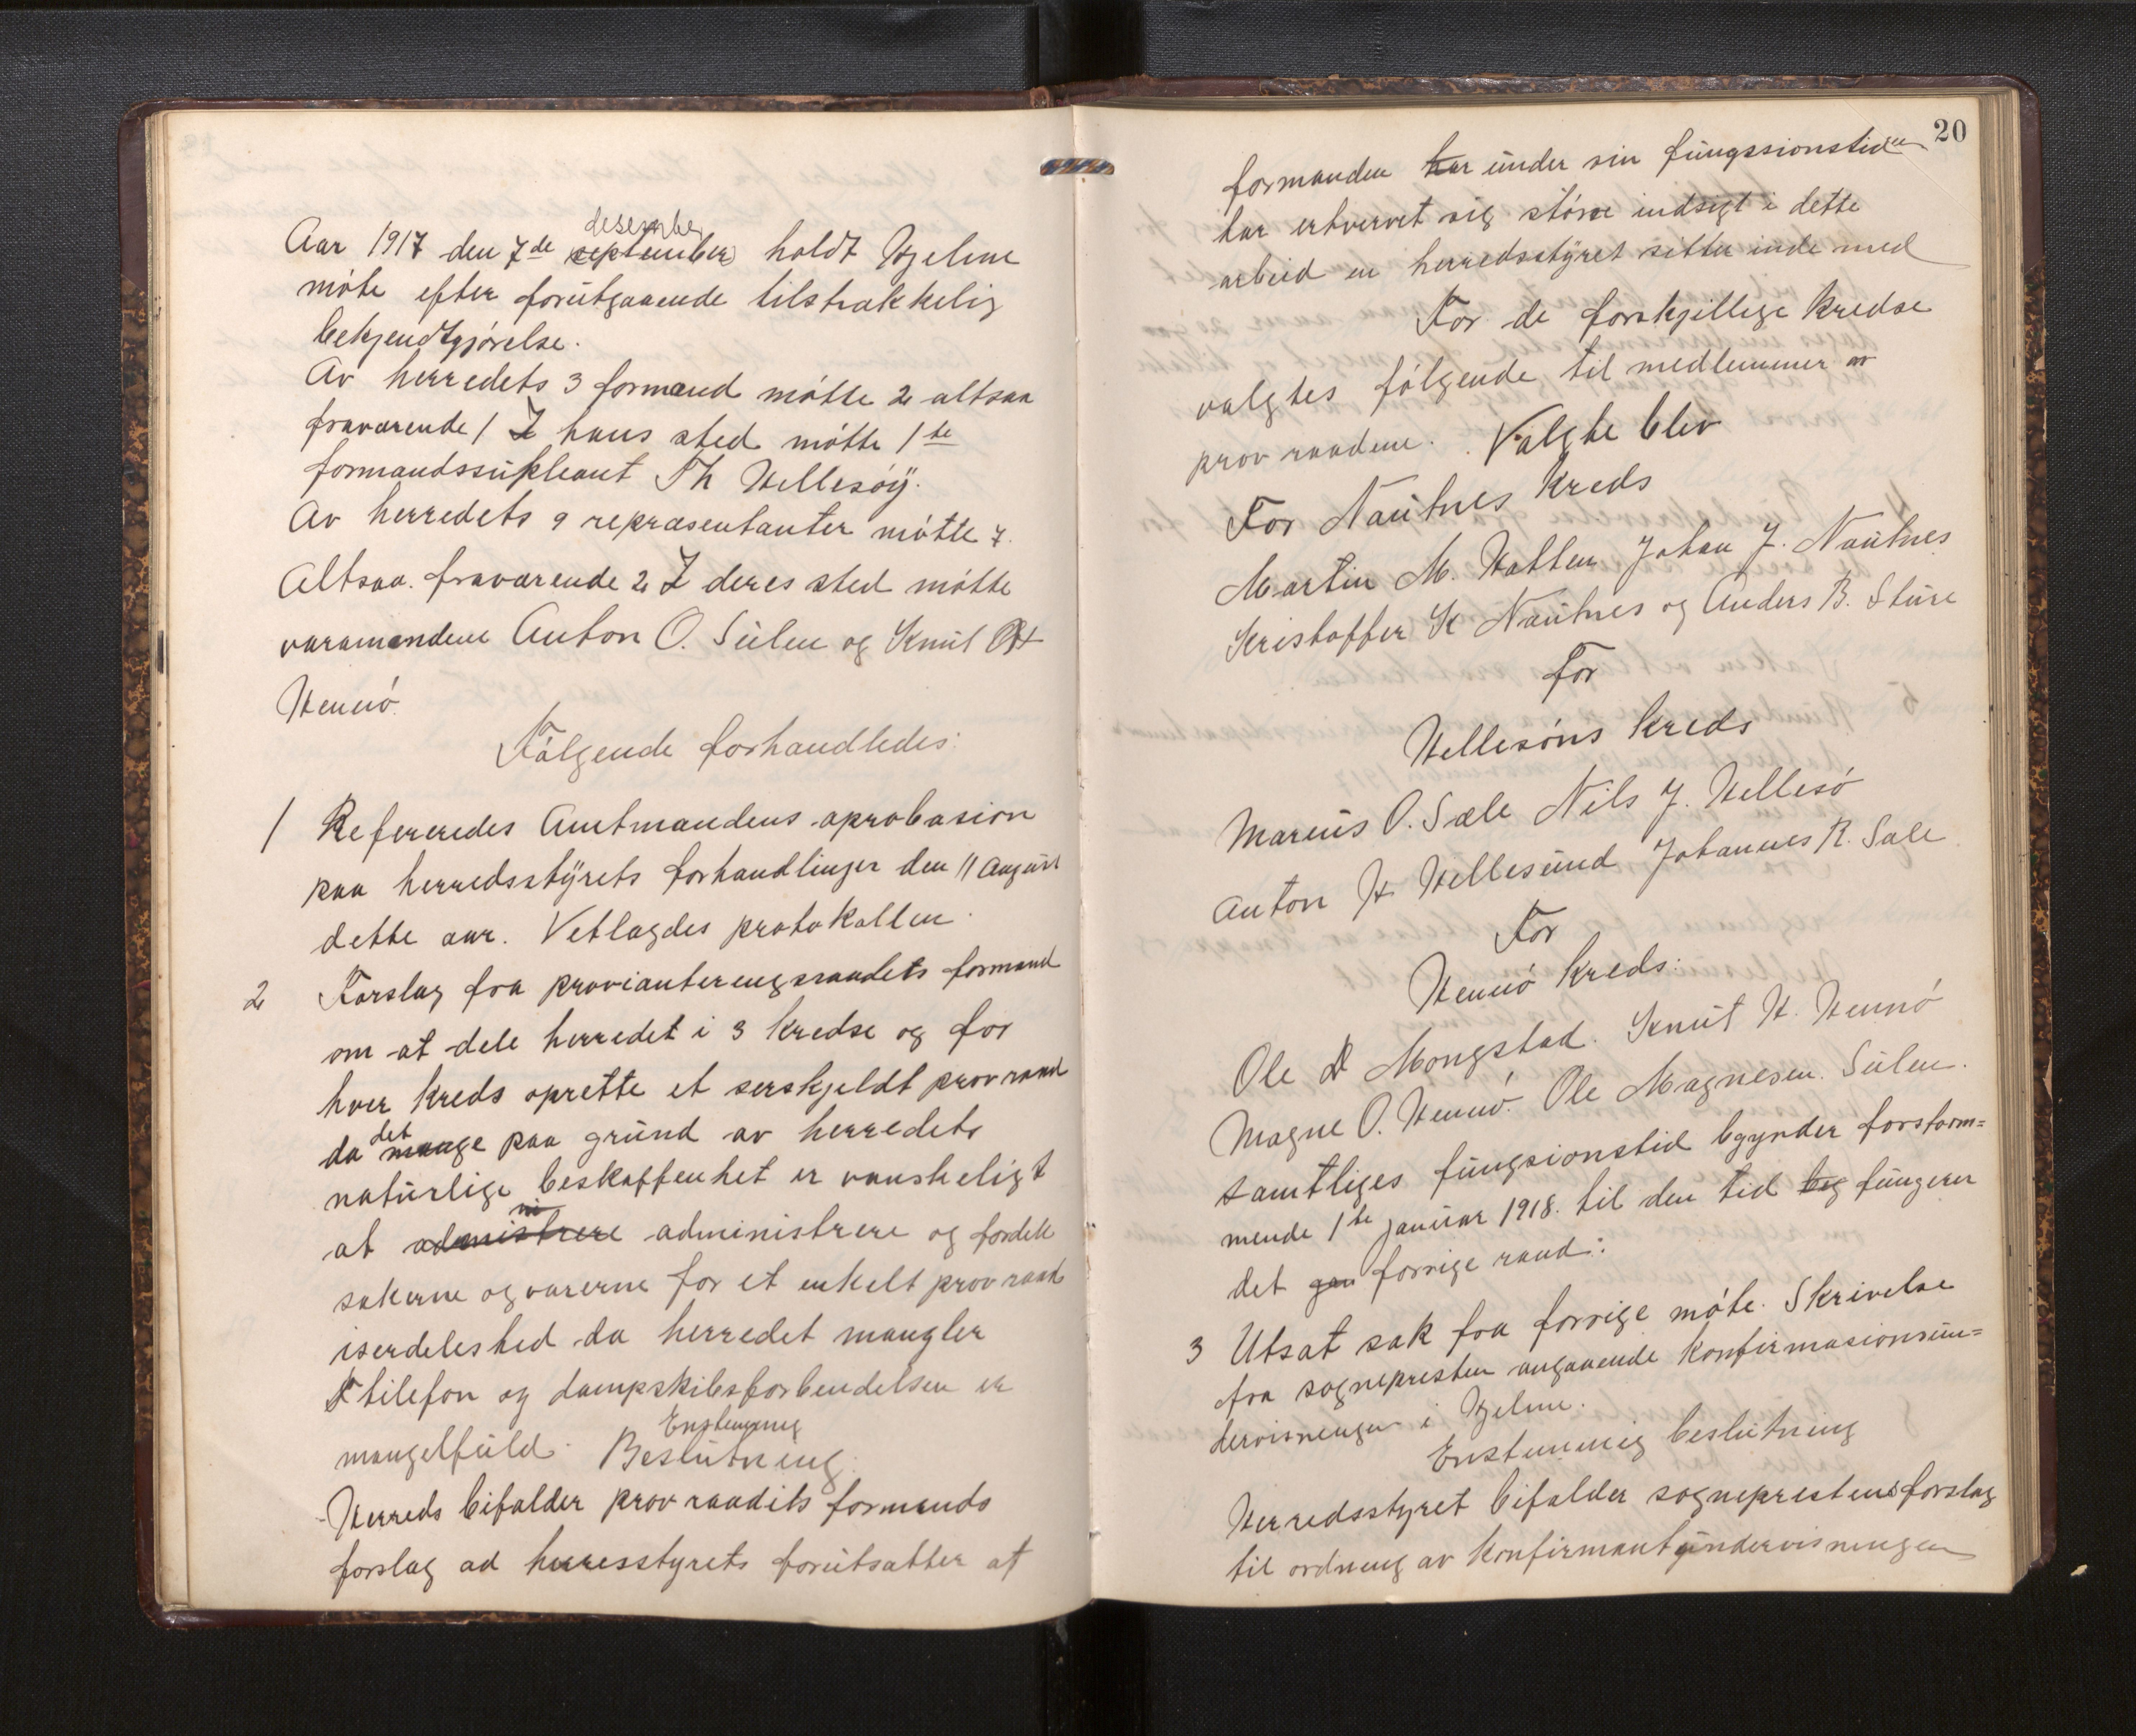 desember
Aar 1917 den 7de september holdt Hjelme
møte efter forutgaaende tilstrækkelig
bekjendtgjørelse.
Av herredets 3 formænd møtte 2 altsaa
fraværende 1 I hans sted møtte 1ste
formandssupleant Th Hellesøy.
Av herredets 9 repræsentanter møtte 7.
Altsaa fraværende 2 I deres sted møtte
varamændene Anton O. Sulen og Knut H
Hennø.
Følgende forhandledes:
1 Refereredes Amtmandens aprobasion
paa herredsstyrets forhandlinger den 11 August
dette aar. Vetlagdes protokollen.
2 Forslag fra provianteringsraadets formand
om at dele herredet i 3 kredse og for
hver kreds oprette et serskjeldt provraad
det
da mange paa grund av herredets
naturlige beskaffenhet er vanskeligt
ni
at admistrere administrere og fordele
sakerne og varerne for et enkelt provraad
iserdeleshed da herredet mangler
tilefon og dampskibsforbendelsen er
Enstemmig
mangelfuld. Beslutning.
Herreds bifalder provraadits formands
forslag ad herresstyrets forutsætter at
20
formanden har under sin fungssionstiden
har erhvervet sig større indsigt i dette
arbeid en herredsstyret sitter inde med
For de forskjellige kredse
valgtes følgende til medlemmer av
provraadene. Valgte blev
For Nautnes kreds
Martin M. Hatten Johan J. Nautnes
Kristoffer K Nautnes og Anders B. Sture
For
Hellesøns kreds
Marius O. Sæle Nils J. Hellesø
Anton H Hellesund Johannes R. Sæle
For
Hennø kreds:
Ole D Mongstad. Knut H. Hennø
Magne O. Hennø. Ole Magnesen. Sulen.
samtliges fungsionstid bgynder førstkom=
mende 1ste januar 1918. til den tid beg fungerer
det gam forrige raad:
3 Utsat sak fra forrige møte. Skrivelse
fra sognepresten angaaende konfirmasionsun=
dervisningen i Hjelme.
Enstemmig beslutning
Herredsstyret bifalder sogneprestens forslag
til ordning av konfirmantundervisningen